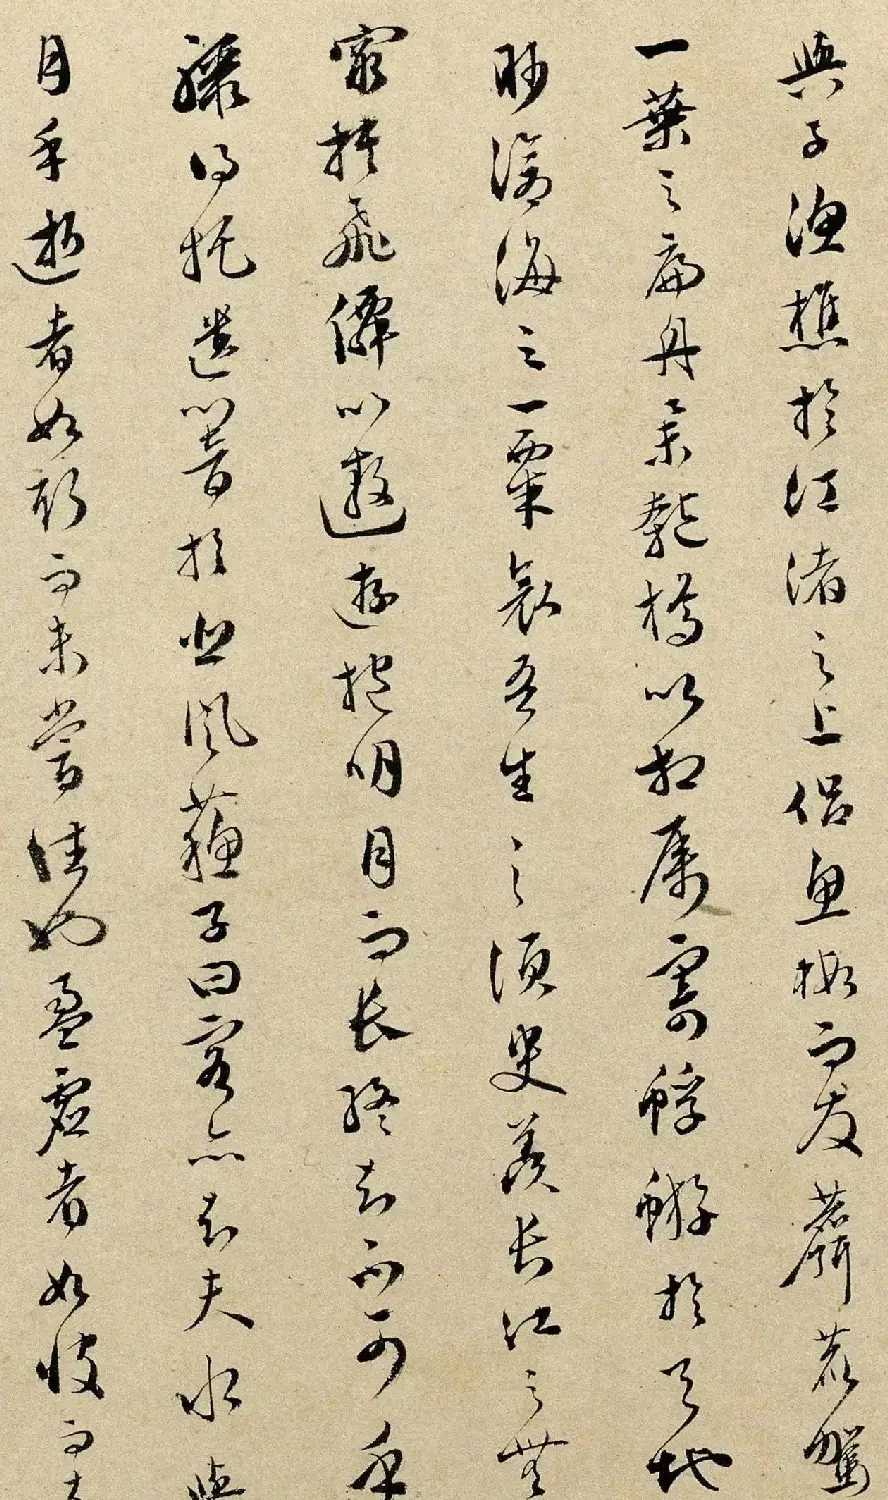 與子漁樵於江渚之上侶魚蝦而友麋鹿駕
一葉之扁舟舉匏樽以相屬寄蜉蝣於天地
眇滄海之一粟哀吾生之須臾羨長江之無
窮挾飛僊以遨遊抱明月而長終知不可乎
驟得托遺響於悲風蘇子曰客亦知夫水與
月乎逝者如斯而未嘗往也盈虛者如彼而